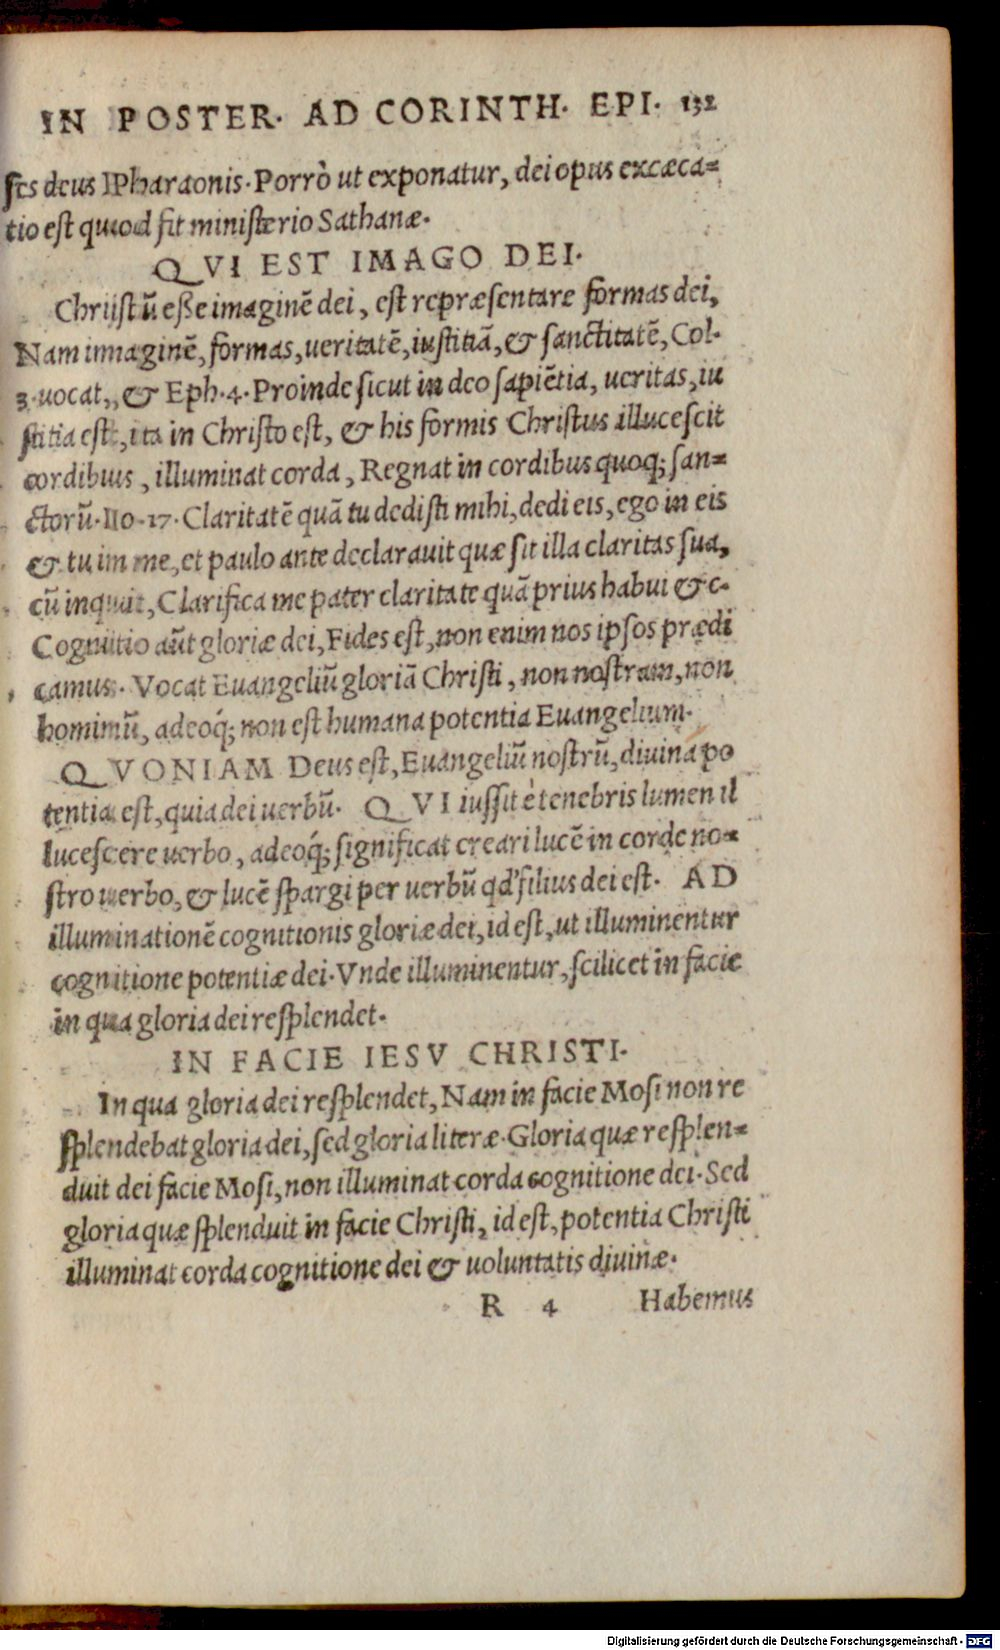 IN POSTER. AD CORINTH. EPI. 132
ses deus Pharaonis. Porrò ut exponatur, dei opus excæca=
tio est quod fit ministerio Sathanæ.
QVI EST IMAGO DEI.
Christũ eße imaginẽ dei, est repræsentare formas dei,
Nam imaginẽ, formas, ueritatẽ, iustitiã, & sanctitatẽ, Col.
3. uocat, & Eph. 4. Proinde sicut in deo sapiẽtia, ueritas, iu
stitia est, ita in Christo est, & his formis Christus illucescit
cordibus, illuminat corda, Regnat in cordibus quoq; san=
ctorũ. Io. 17. Claritatẽ quã tu dedisti mihi, dedi eis, ego in eis
& tu in me, et paulo ante declarauit quæ sit illa claritas sua,
cũ inquit, Clarifica me pater claritate quã prius habui & c.
Cognitio aũt gloriæ dei, Fides est, non enim nos ipsos prædi
camus. Vocat Euangeliũ gloriã Christi, non nostram, non
hominũ, adeoq́; non est humana potentia Euangelium.
QVONIAM Deus est, Euangeliũ nostrũ, diuina po
tentia est, quia dei uerbũ. QVI iussit è tenebris lumen il
lucescere uerbo, adeoq́; significat creari lucẽ in corde no=
stro uerbo, & lucẽ spargi per uerbũ qd' filius dei est. AD
illuminationẽ cognitionis gloriæ dei, id est, ut illuminentur
cognitione potentiæ dei. Vnde illuminentur, scilicet in facie
in qua gloria dei resplendet.
IN FACIE IESV CHRISTI.
In qua gloria dei resplendet, Nam in facie Mosi non re
splendebat gloria dei, sed gloria literæ. Gloria quæ resplen=
duit dei facie Mosi, non illuminat corda cognitione dei. Sed
gloria quæ splenduit in facie Christi, id est, potentia Christi
illuminat corda cognitione dei & uoluntatis diuinæ.
R 4 Habemus
Digitalisierung gefördert durch die Deutsche Forschungsgemeinschaft - DFG